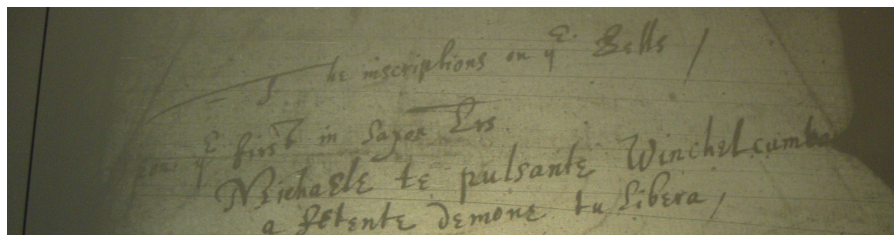 The inscriptions on yᵉ. Bells /
upon yᵉ first in Saxon Lrs
Michaele te pulsante Winchelcumba
a petente demone tu Libera,